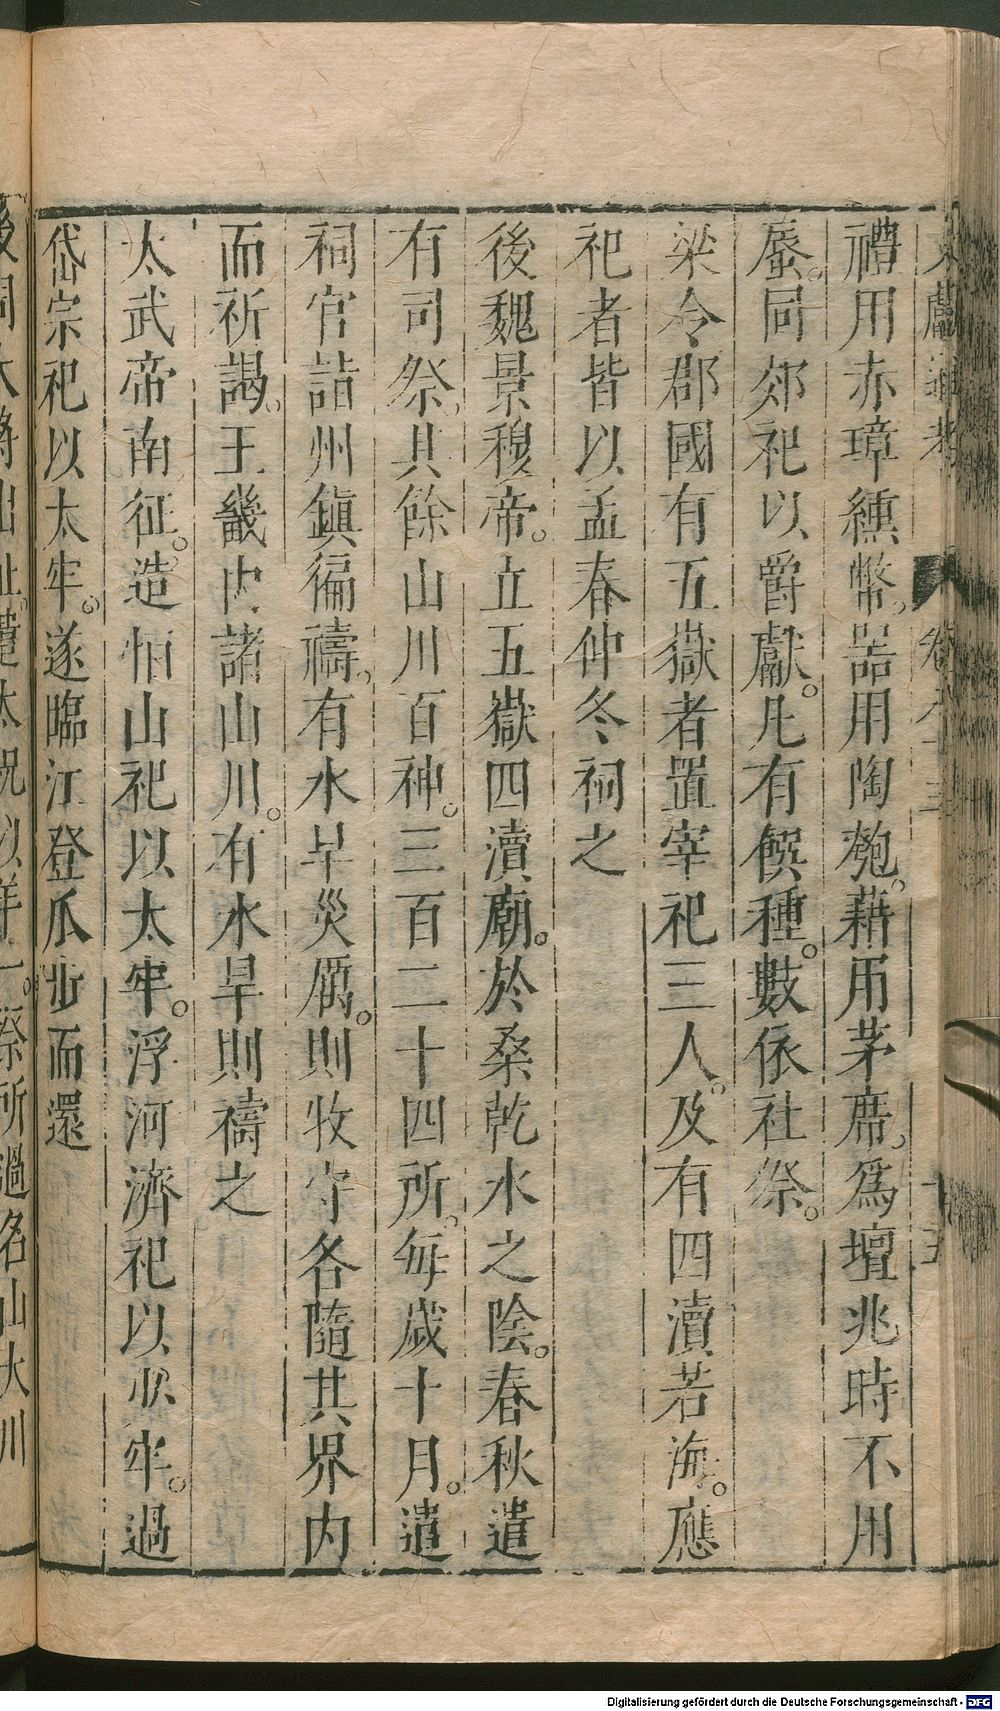 文獻通考 卷八十三 十五
禮用赤璋纁幣。器用陶匏。藉用茅席。為壇兆時不用
蜃。同郊祀以爵獻。凡有饌種。數依社祭。
梁令郡國有五嶽者置宰祀三人。及有四瀆若海。應
祀者皆以孟春仲冬祠之
後魏景穆帝。立五嶽四瀆廟。於桑乾水之陰。春秋遣
有司祭。其餘山川百神。三百二十四所。每歲十月。遣
祠官詣州鎮徧禱。有水旱災厲。則牧守各隨其界內
而祈謁。王畿内諸山川。有水旱則禱之
太武帝南征。造恒山祀以太牢。浮河濟祀以少牢。過
岱宗祀以太牢。遂臨江登瓜步而還
後周大將出征。遣太祝以羊一。祭所過名山大川
Digitalisierung gefördert durch die Deutsche Forschungsgemeinschaft - DFG